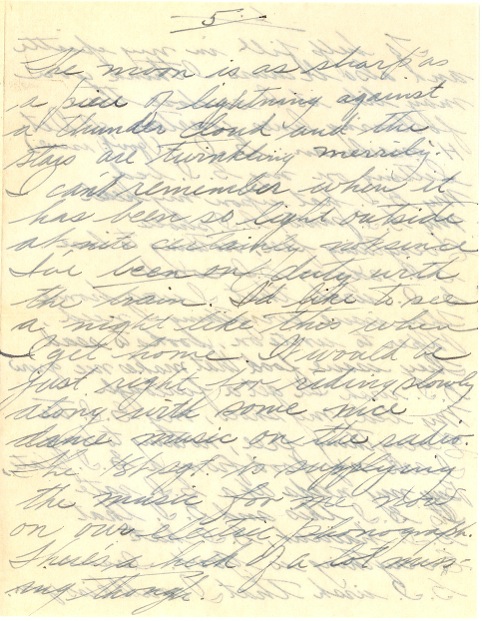 5
The moon is as sharp as
a piece of lightning against
a thunder cloud and the
stars are twinkling merrily.
I cant remember when it
has been so light outside
at nite certainly not since
I've been on duty with
the train. I'd like to see
a night like this when
I get home. It would be
just right for riding slowly
along with some nice
dance music on the radio.
The Sgt. is supplying
the music for me now
on our electric phonograph.
There's a heck of a lot miss-
ing though.